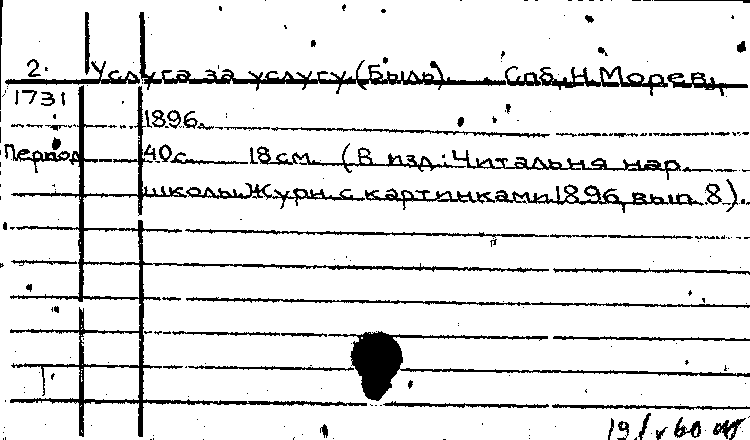 2. Услуга за услугу (Быль). Спб, Н. Морев,
1731
1896.
Период 40 с. 18 см. (В изд.: Читальня нар.
школы. Журн. с картинками 1896, вып. 8).